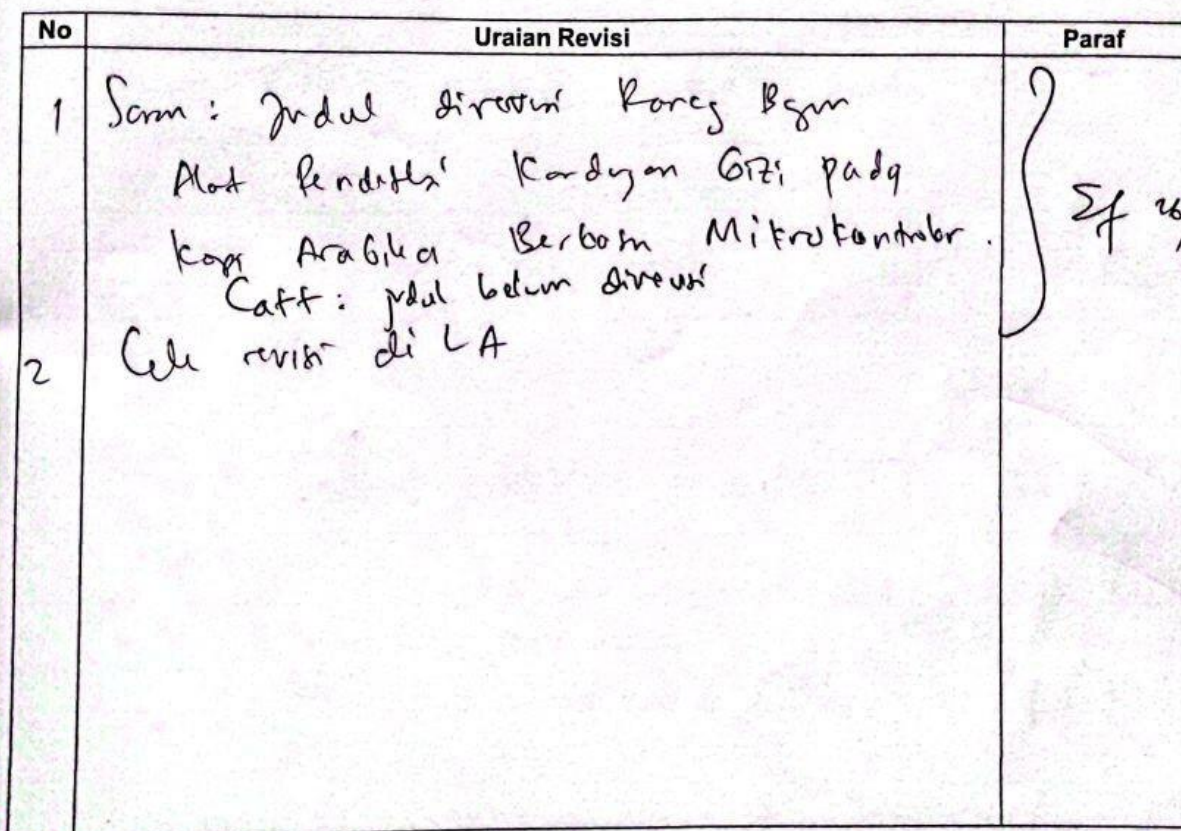 No Uraian Revisi Paraf
1 Saran : Judul direvisi Rancang Bgun
Alat Pendeteksi Kandungan Gizi pada
Kopi Arabika Berbasis Mikrokontroler.
Catt : judul belum direvisi
2 Cek revisi di LA